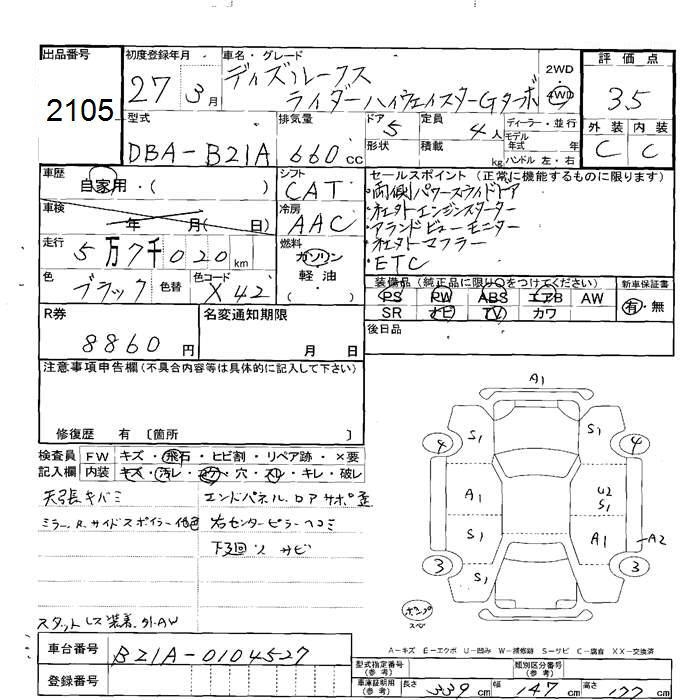 出品番号
2105
初度登録年月
27年3月
車名・グレード
デイズルークス
ライダーハイウェイスターGターボ
2WD
4WD
評価点
3.5
外装 内装
C C
型式
DBA-B21A
排気量
660cc
ドア
5
定員
4人
形状
積載
kg
ディーラー・並行
モデル
年式 年
ハンドル 左・右
車歴
自家用・( )
車検
年 月( 日)
走行
5万7千020km
色
ブラック
色替
色コード
X42
シフト
CAT
冷房
AAC
燃料
ガソリン
軽油
( )
セールスポイント(正常に機能するものに限ります)
・両側パワースライドドア
・社外エンジンスターター
・アラウンドビューモニター
・社外マフラー
・ETC
装備品(純正品に限り○をつけてください)
PS PW ABS エアB AW
SR ナビ TV カワ
新車保証書
有・無
後日品
R券
8860円
名変通知期限
月 日
注意事項申告欄(不具合内容等は具体的に記入して下さい)
修復歴 有 〔箇所 〕
検査員 FW キズ・飛石・ヒビ割・リペア跡・×要
記入欄 内装 キズ・汚レ・コゲ・穴・スレ・キレ・破レ
天張キバミ
ミラー、R、サイドスポイラー他色
スタットレス装着、外AW
エンドパネル、ロアサポ歪
右センターピラーヘコミ
下回リ サビ
A1
S1 S1
4 4
A1 U2
S1
S1 A1 A2
3 S1 3
スペ
A-キズ E-エクボ U-凹み W-補修跡 S-サビ C-腐食 XX-交換済
車台番号
B21A-0104527
登録番号
型式指定番号
(参考)
類別区分番号
(参考)
車庫証明用
(参考)
長さ 339cm 幅 147cm 高さ 177cm